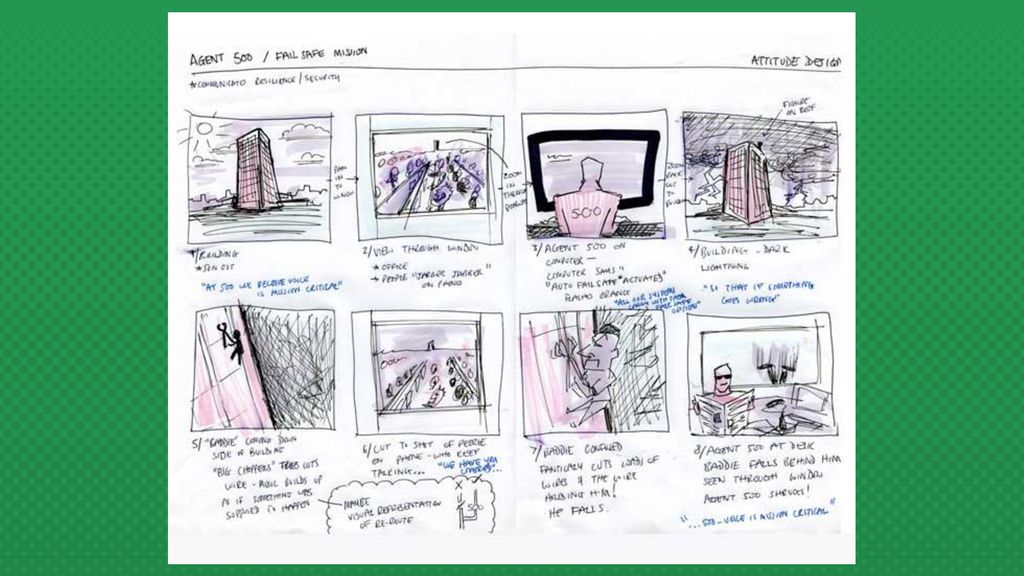 AGENT 500 / FAIL SAFE MISSION
ATTITUDE DESIGN
*COMMUNICATE RESILIENCE/SECURITY
FIGURE
ON ROOF
PAN
IN
TO
WINDOW
ZOOM
IN
THROUGH
ZOOM
BACK
OUT TO
500
1/ BUILDING
* SUN OUT
"AT 500 WE BELIEVE VOICE
IS MISSION CRITICAL"
2/ VIEW THROUGH WINDOW
→ OFFICE
→ PEOPLE "JABBER JABBER"
ON PHONE
3/ AGENT 500 ON
COMPUTER —
COMPUTER SAYS"
"AUTO FAILSAFE "ACTUATED"
"ALL OUR SYSTEMS
FAIL SAFE
OPTION"
4/ BUILDING - DARK
LIGHTNING
"SO THAT IF SOMETHING
GOES WRONG"
5/ "BADDIE" COMING DOWN
SIDE OF BUILDING
"BIG CHOPPERS" CUTS
WIRE - MUSIC BUILDS UP
AS IF SOMETHING WAS
SUPPOSED TO HAPPEN
6/ CUT TO SHOT OF PEOPLE
ON PHONE - WHO KEEP
TALKING...
"WE HAVE YOU
COVERED"...
MAYBE
VISUAL REPRESENTATION
OF RE-ROUTE
500
7/ BADDIE CONFUSED
CUTS LOADS OF
WIRES & THE WIRE
HOLDING HIM!
HE FALLS.
8/ AGENT 500 AT DESK
BADDIE FALLS BEHIND HIM
SEEN THROUGH WINDOW
AGENT 500 SHRUGS!
"...500-VOICE IS MISSION CRITICAL"